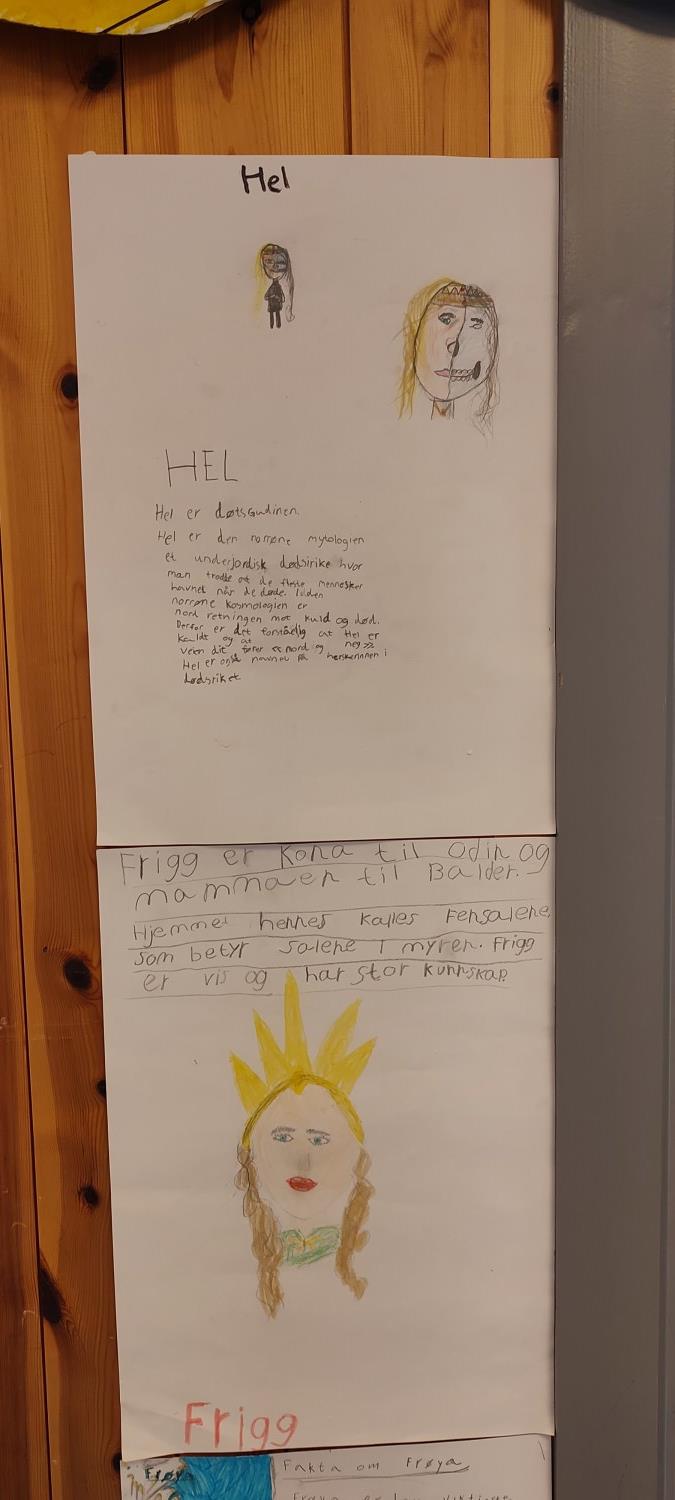 Hel
HEL
Hel er døtsGudinen.
Hel er den norrøne mytologien
et underjordisk dødsirike hvor
man trodde at de fleste mennesker
havnet når de døde. I den
norrøne kosmologien er
nord retningen mot kuld og død.
Derfor er det forståelig at Hel er
kaldt og at
veien dit fører nord og ned>>
Hel er også navnet på herskerinnen i
dødsriket
Frigg er Kona til Odin og
mammaen til Balder.
Hjemmet hennes kalles Fensalene,
som betyr salene I myren. Frigg
er vis og har stor kunnskap.
Frigg
Frøya
Fakta om Frøya
Frøya er